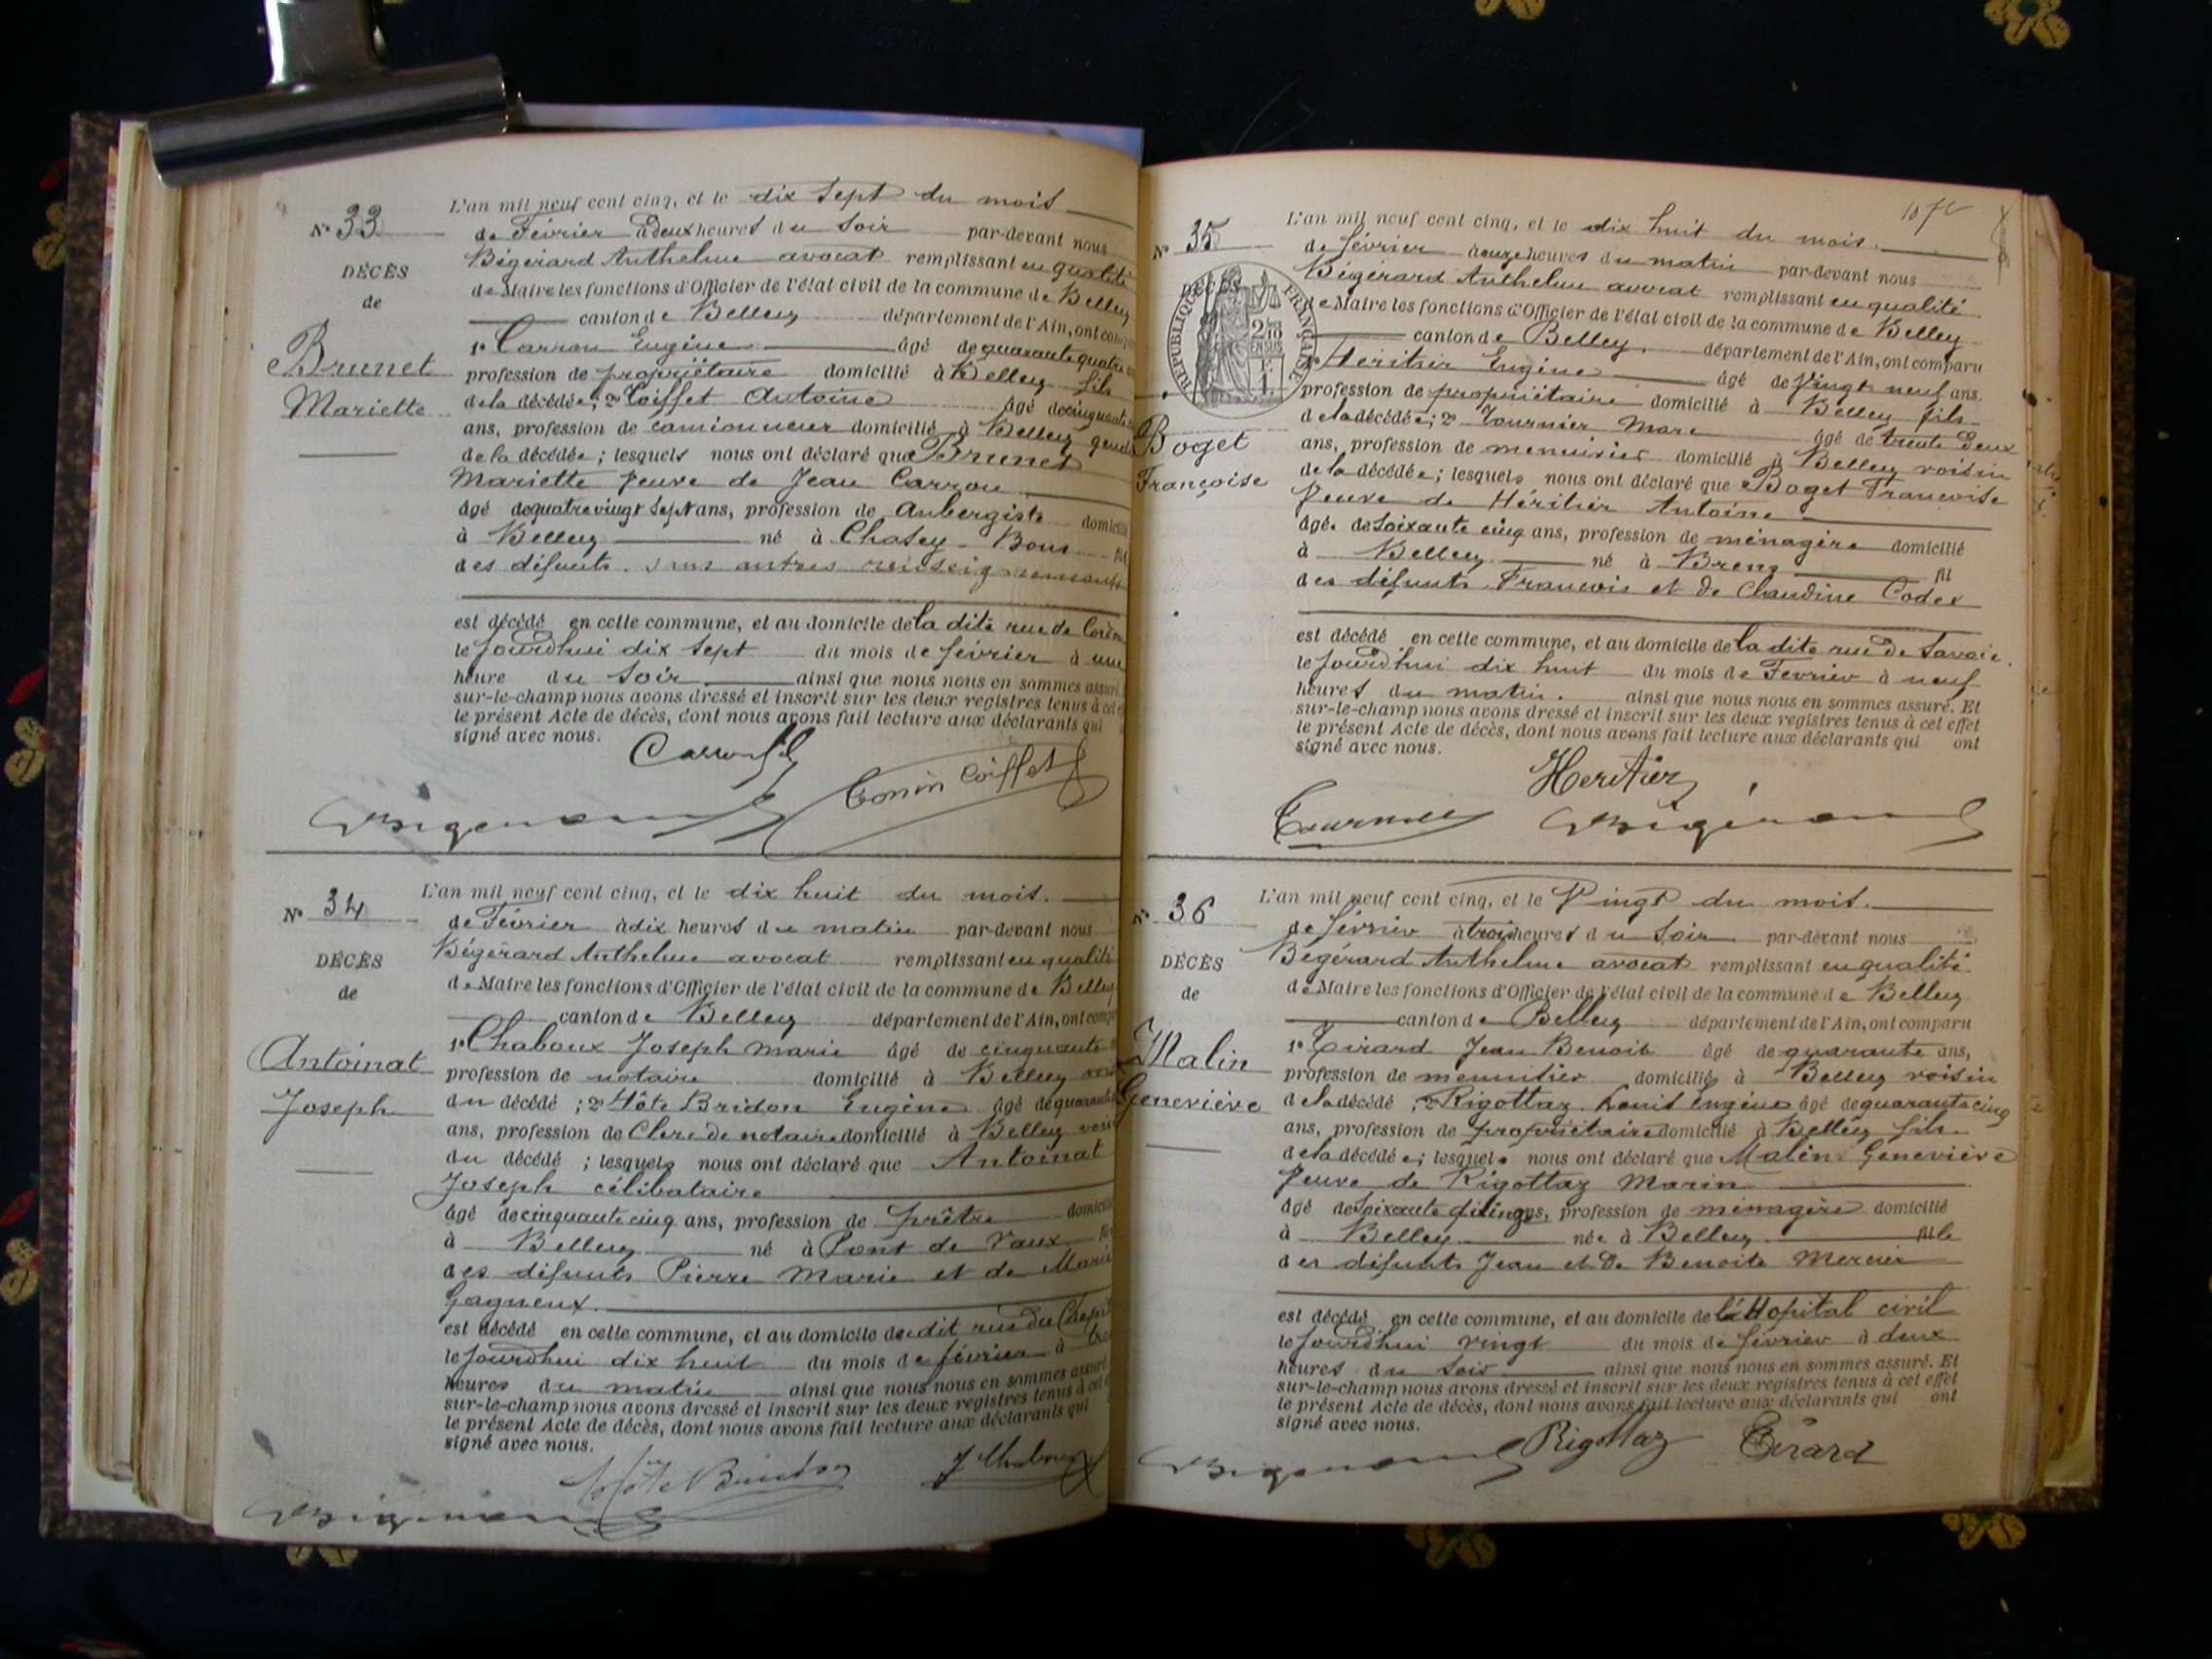 N° 33
DÉCÈS
de
Brunet
Mariette
L'an mil neuf cent cinq, et le dix sept du mois
de Février à deux heures du soir par-devant nous
Bégérard Anthelme avocat remplissant en qualité
de Maire les fonctions d'Officier de l'état civil de la commune de Belley
canton de Belley département de l'Ain, ont
1° Carron Eugène âgé de quarante quatre
profession de propriétaire domicilié à Belley fils
de la décédée; 2° Coiffet Antoine âgé de cinquante
ans, profession de camionneur domicilié à Belley
de la décédée; lesquels nous ont déclaré que Brunet
Mariette veuve de Jean Carron
âgé de quatre vingt sept ans, profession de Aubergiste
à Belley né à Chasey-Bons
des défunts. sans autres renseignements
est décédé en cette commune, et au domicile de la dite rue de
le jourdhui dix sept du mois de février à une
heure du soir ainsi que nous nous en sommes assuré
sur-le-champ nous avons dressé et inscrit sur les deux registres tenus à cet
le présent Acte de décès, dont nous avons fait lecture aux déclarants qui
signé avec nous.
Tonin Coiffet
N° 34
DÉCÈS
de
Antoinat
Joseph
L'an mil neuf cent cinq, et le dix huit du mois.
de Février à dix heures du matin par-devant nous
Bégérard Anthelme avocat remplissant en qualité
de Maire les fonctions d'Officier de l'état civil de la commune de Belley
canton de Belley département de l'Ain, ont
1° Chaboux Joseph marie âgé de cinquante
profession de notaire domicilié à Belley
du décédé; 2° Hôte Bridon Eugène âgé de quarante
ans, profession de Clerc de notaire domicilié à Belley
du décédé; lesquels nous ont déclaré que Antoinat
Joseph célibataire
âgé de cinquante cinq ans, profession de prêtre
à Belley né à Pont de Vaux
des défunts Pierre Marie et de Marie
Gagneux.
est décédé en cette commune, et au domicile du dit rue du
le jourdhui dix huit du mois de février à
heures du matin ainsi que nous nous en sommes assuré
sur-le-champ nous avons dressé et inscrit sur les deux registres tenus à cet
le présent Acte de décès, dont nous avons fait lecture aux déclarants qui
signé avec nous.
N° 35
DÉCÈS
REPUBLIQUE FRANÇAISE
2/10
EN SUS
Boget
Françoise
L'an mil neuf cent cinq, et le dix huit du mois.
de février à onze heures du matin par-devant nous
Bégérard Anthelme avocat remplissant en qualité
de Maire les fonctions d'Officier de l'état civil de la commune de Belley
canton de Belley. département de l'Ain, ont comparu
1° Héritier Eugène âgé de vingt neuf ans.
profession de propriétaire domicilié à Belley fils
de la décédée; 2° Tournier Marc âgé de trente deux
ans, profession de menuisier domicilié à Belley voisin
de la décédée; lesquels nous ont déclaré que Boget Françoise
veuve de Héritier Antoine
âgée de soixante cinq ans, profession de ménagère domicilié
à Belley né à Brens fil
des défunts François et de Claudine Codex
est décédé en cette commune, et au domicile de la dite rue de Savoie.
le jourd'hui dix huit du mois de Février à neuf
heures du matin. ainsi que nous nous en sommes assuré. Et
sur-le-champ nous avons dressé et inscrit sur les deux registres tenus à cet effet
le présent Acte de décès, dont nous avons fait lecture aux déclarants qui ont
signé avec nous.
Heritier
N° 36
DÉCÈS
de
Malin
Geneviève
L'an mil neuf cent cinq, et le Vingt du mois.
de février à trois heures du soir par-devant nous
Bégérard Anthelme avocat remplissant en qualité
de Maire les fonctions d'Officier de l'état civil de la commune de Belley
canton de Belley département de l'Ain, ont comparu
1° Girard Jean Benoit âgé de quarante ans,
profession de menuisier domicilié à Belley voisin
de la décédé; 2° Rigottaz Louis Eugène âgé de quarante cinq
ans, profession de propriétaire domicilié à Belley fils
de la décédée; lesquels nous ont déclaré que Malin Geneviève
veuve de Rigottaz Marin
âgé de soixante ans, profession de ménagère domicilié
à Belley née à Belley fille
des défunts Jean et de Benoite Mercier
est décédé en cette commune, et au domicile de l'Hopital civil
le jourdhui vingt du mois de février à deux
heures du soir ainsi que nous nous en sommes assuré. Et
sur-le-champ nous avons dressé et inscrit sur les deux registres tenus à cet effet
le présent Acte de décès, dont nous avons fait lecture aux déclarants qui ont
signé avec nous.
Rigottaz Girard